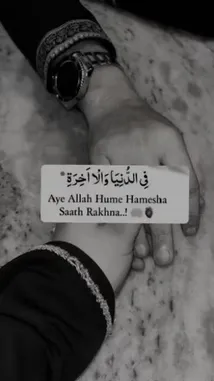 فِي الدُّنِيَا وَالْا اَخِرَةِ *
Aye Allah Hume Hamesha
Saath Rakhna..!